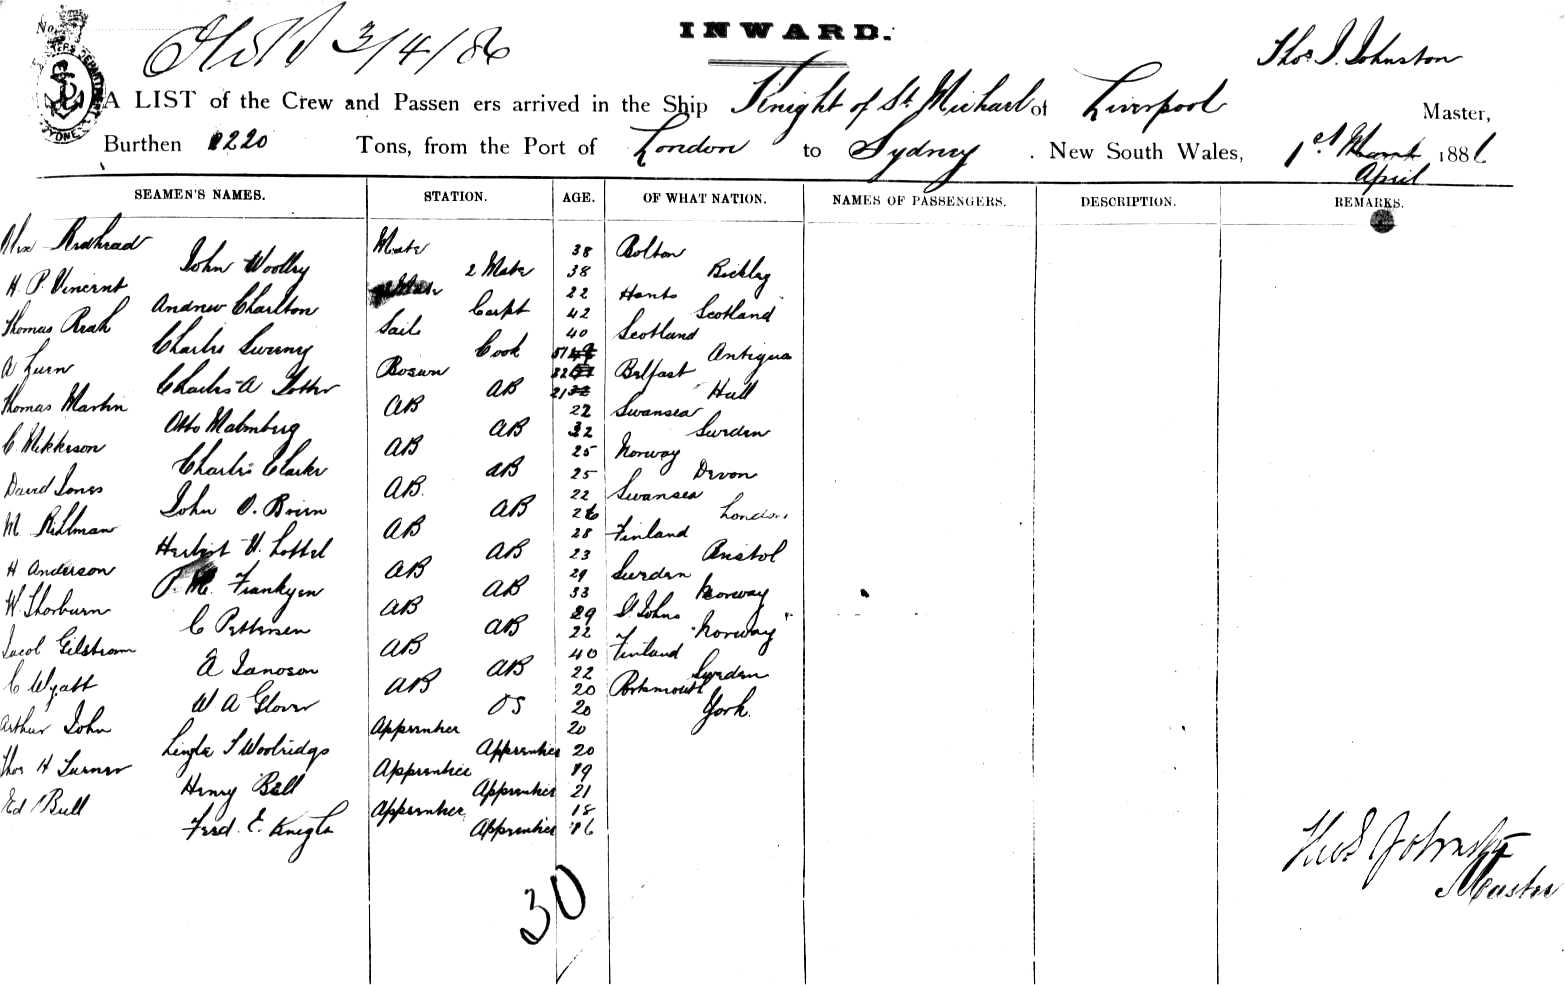 No.
INWARD.
3/4/86
Thos S. Johnston
A LIST of the Crew and Passen ers arrived in the Ship Knight of St. Michael of Liverpool Master,
Burthen 2220 Tons, from the Port of London to Sydney . New South Wales, 1st March 1886
April
SYDNEY
SEAMEN'S NAMES. STATION. AGE. OF WHAT NATION. NAMES OF PASSENGERS. DESCRIPTION. REMARKS.
Alex Redhead Mate 38 Bolton
John Woolley 2 Mate 38 Bickley
H. P. Vincent 22 Hants
Andrew Charlton Carpt 42 Scotland
Thomas Sail 40 Scotland
Charles Sweeny Cook 51 Antigua
A Bosun 32 Belfast
Charles A AB 21 Hull
Thomas Martin AB 22 Swansea
Otto Malmberg AB 32 Sweden
C Mikkeson AB 25 Norway
Charles Clarke AB 25 Devon
David Jones AB. 22 Swansea
John O. Brien AB 26 London
M AB 28 Finland
Herbert AB 23 Bristol
H Anderson AB 29 Sweden
P. M. AB 33 Norway
W. Thorburn AB 29 St Johns
C Pettersen AB 22 Norway
Jacob Gilstrom AB 40 Finland
A Janoson AB 22 Sweden
C Wyatt AB 20 Portsmouth
W A Glover OS 20 York.
Arthur John Apprentice 20
S Woolridge Apprentice 20
Thos H Turner Apprentice 19
Henry Bell Apprentice 21
Ed Bull Apprentice 18
Fred. E. Knight Apprentice 16
30
Thos S Johnston
Master